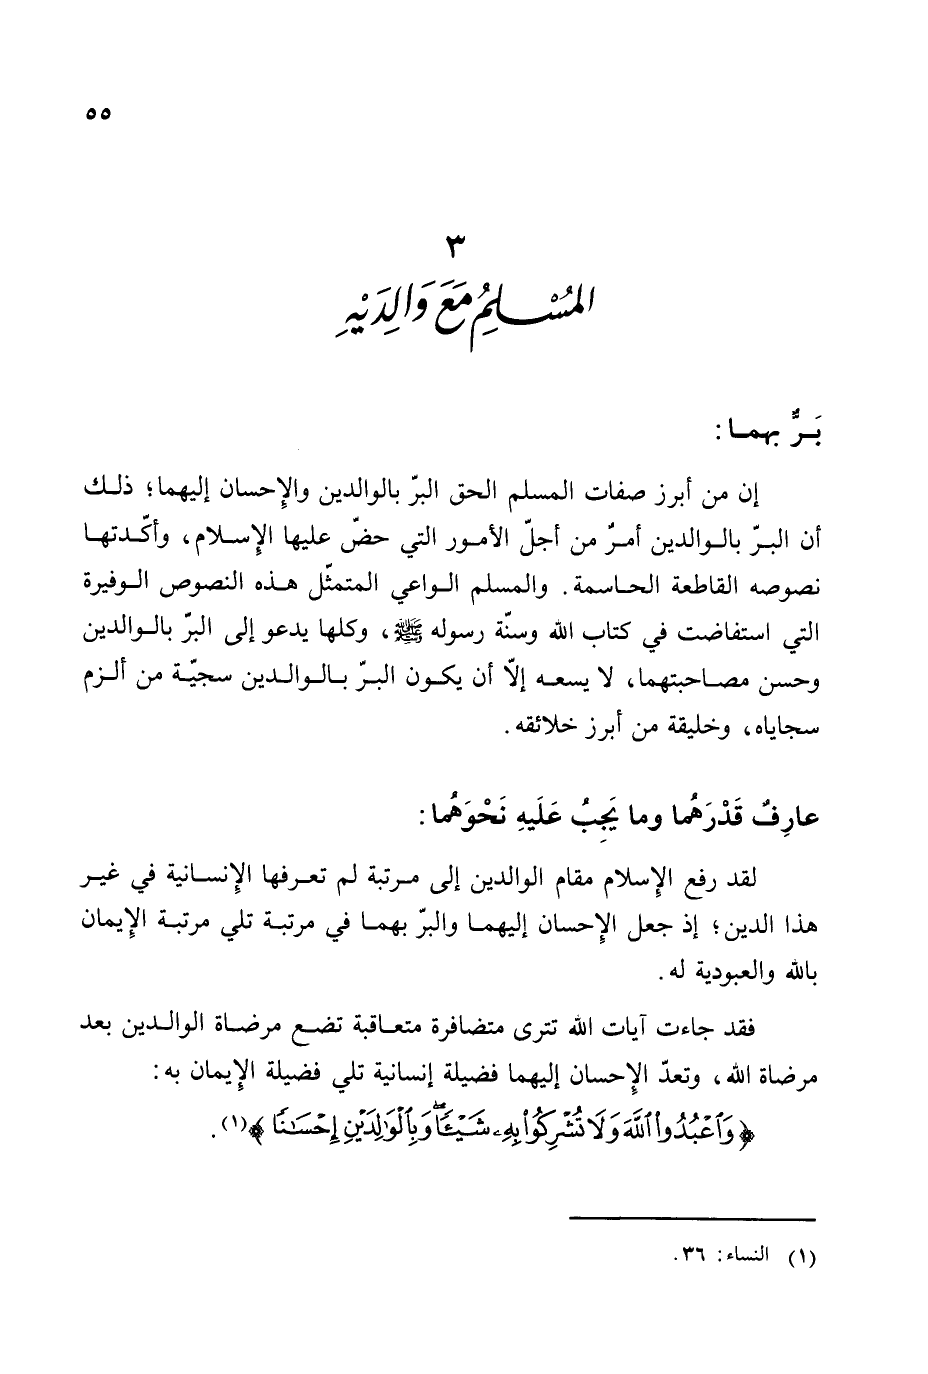 ٥٥
٣
المُسْلِمُ مَعَ وَالِدَيْهِ
بَرٌّ بهما:
إن من أبرز صفات المسلم الحق البرّ بالوالدين والإحسان إليهما؛ ذلك
أن البرّ بالوالدين أمرٌ من أجلّ الأمور التي حضّ عليها الإسلام، وأكّدتها
نصوصه القاطعة الحاسمة. والمسلم الواعي المتمثّل هذه النصوص الوفيرة
التي استفاضت في كتاب الله وسنّة رسوله ﷺ، وكلها يدعو إلى البرّ بالوالدين
وحسن مصاحبتهما، لا يسعه إلاّ أن يكون البرّ بالوالدين سجيّة من ألزم
سجاياه، وخليقة من أبرز خلائقه.
عارِفٌ قَدْرَهُما وما يَجِبُ عَلَيهِ نَحْوَهُما:
لقد رفع الإسلام مقام الوالدين إلى مرتبة لم تعرفها الإنسانية في غير
هذا الدين؛ إذ جعل الإحسان إليهما والبرّ بهما في مرتبة تلي مرتبة الإيمان
بالله والعبودية له.
فقد جاءت آيات الله تترى متضافرة متعاقبة تضع مرضاة الوالدين بعد
مرضاة الله، وتعدّ الإحسان إليهما فضيلة إنسانية تلي فضيلة الإيمان به:
﴿وَٱعۡبُدُواْ ٱللَّهَ وَلَا تُشۡرِكُواْ بِهِۦ شَيۡـٔٗاۖ وَبِٱلۡوَٰلِدَيۡنِ إِحۡسَٰنٗا﴾(١).
(١) النساء: ٣٦.